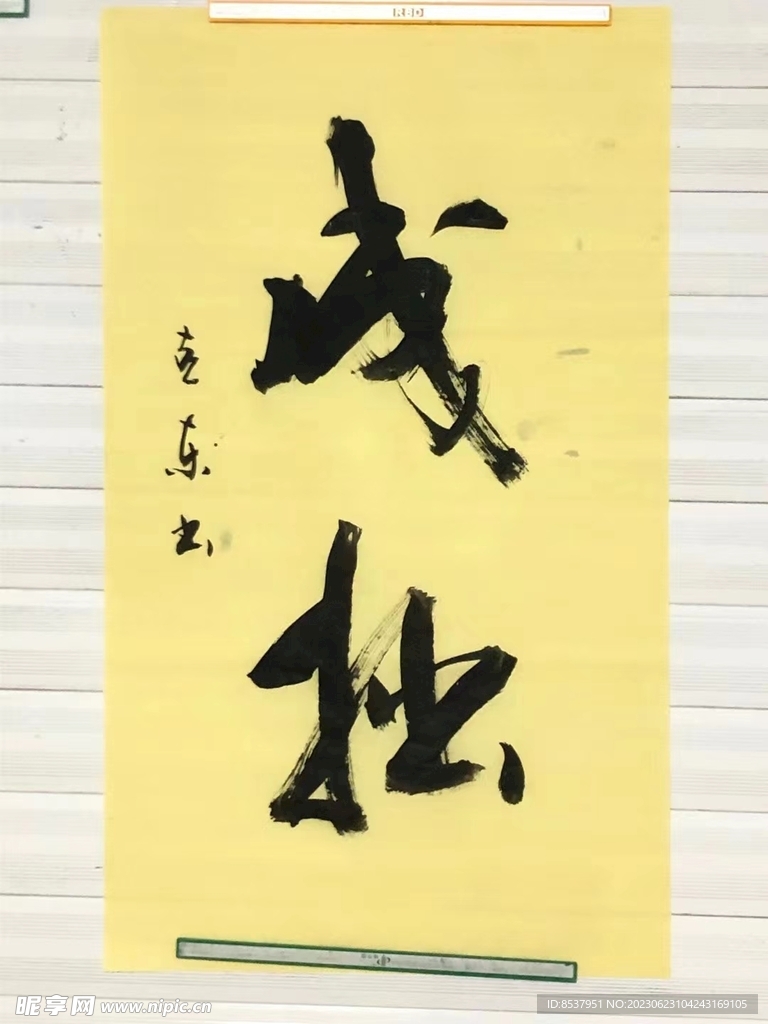 成拙
克东书
R8D
昵享网 www.nipic.cn
ID:8537951 NO:20230623104243169105